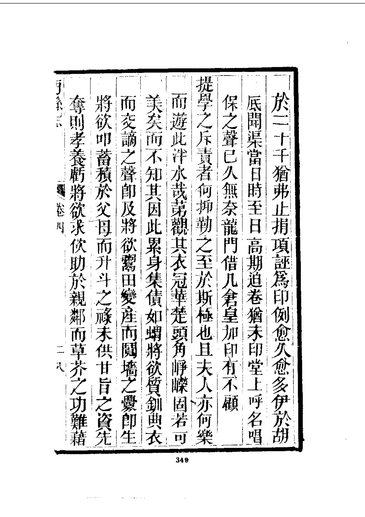 於二十千猶弗止捐項誣爲印例愈久愈多伊於胡
底開渠當日時至日高期迫卷猶未印堂上呼名唱
保之聲已久無奈龍門借几倉皇加印有不顧
提學之斥責者何抑勒之至於斯極也且夫人亦何樂
而遊此泮水哉苐觀其衣冠華楚頭角崢嶸固若可
美矣而不知其因此累身集債如蝟將欲質釧典衣
而交謫之聲卽及將欲鬻田變產而鬩墻之釁卽生
將欲叩蓄積於父母而升斗之祿未供甘旨之資先
奪則孝養虧將欲求佽助於親鄰而草芥之功難藉
卷四
二八
349